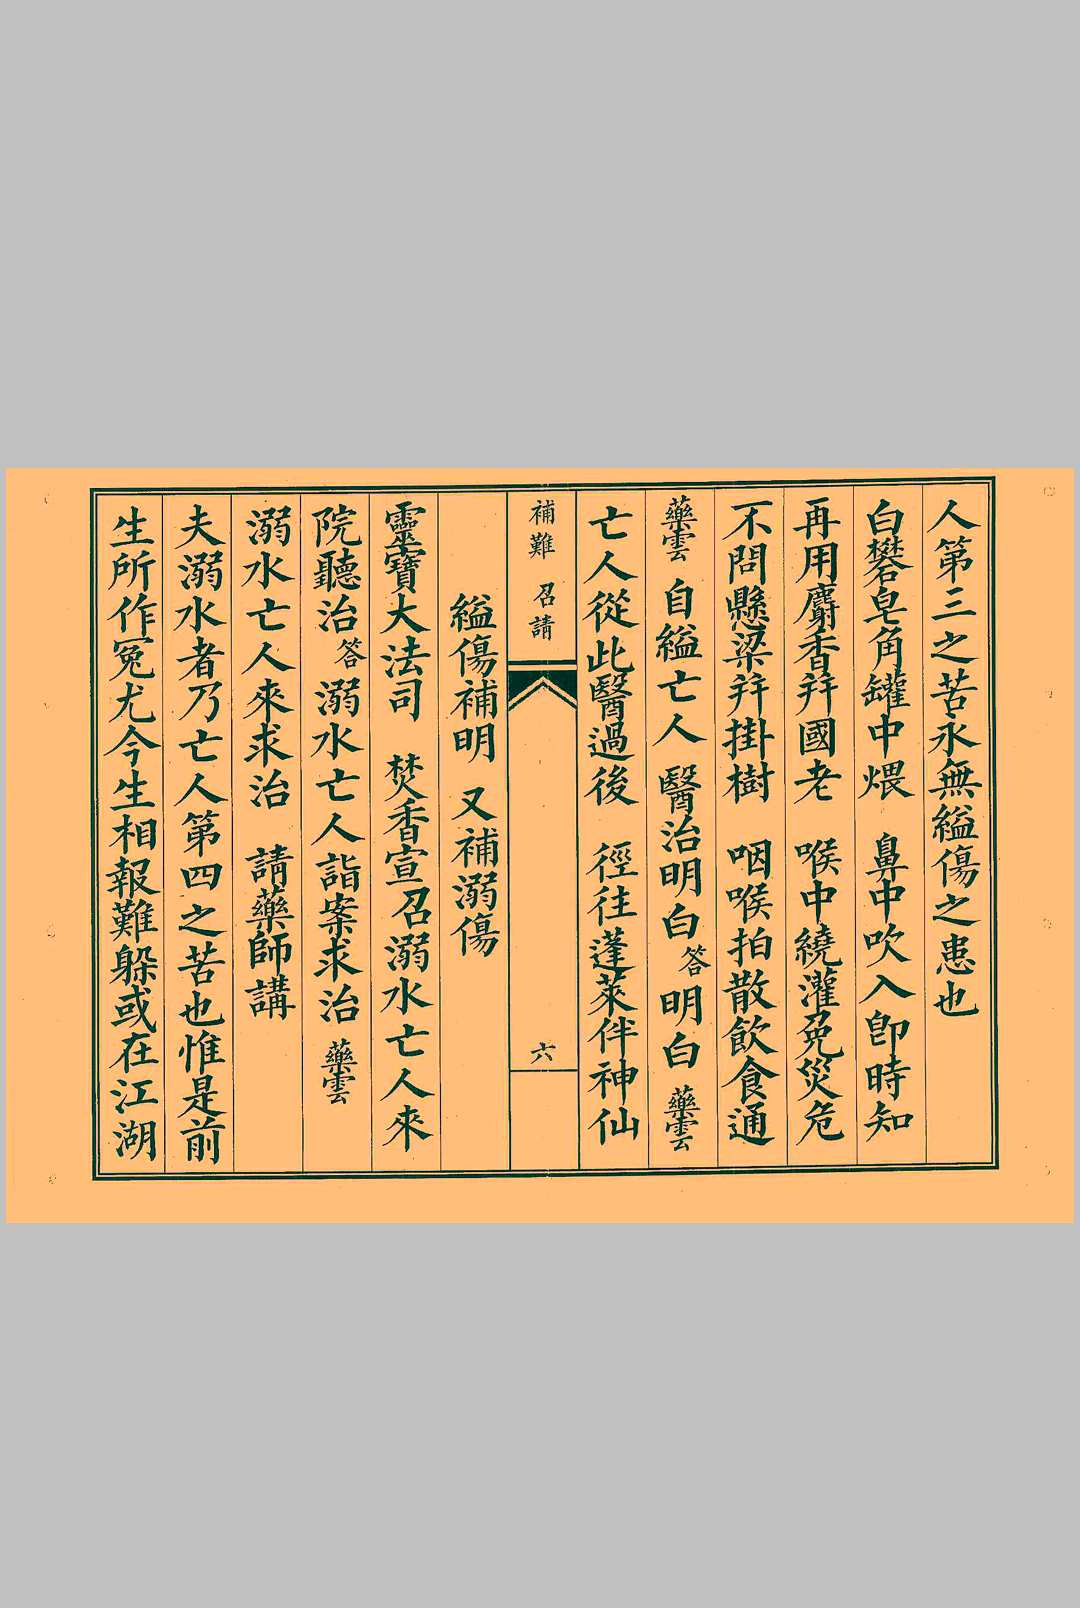 人第三之苦永無縊傷之患也
白礬皂角罐中煨　鼻中吹入即時知
再用麝香幷國老　喉中繞灌免災危
不問懸梁幷掛樹　咽喉拍散飲食通
藥雲　自縊亡人　醫治明白　答　明白　藥雲
亡人從此醫過後　徑往蓬萊伴神仙
補難　召請　六
縊傷補明　又補溺傷
靈寶大法司　焚香宣召溺水亡人來
院聽治　答　溺水亡人詣案求治　藥雲
溺水亡人來求治　請藥師講
夫溺水者乃亡人第四之苦也惟是前
生所作冤尤今生相報難躲或在江湖